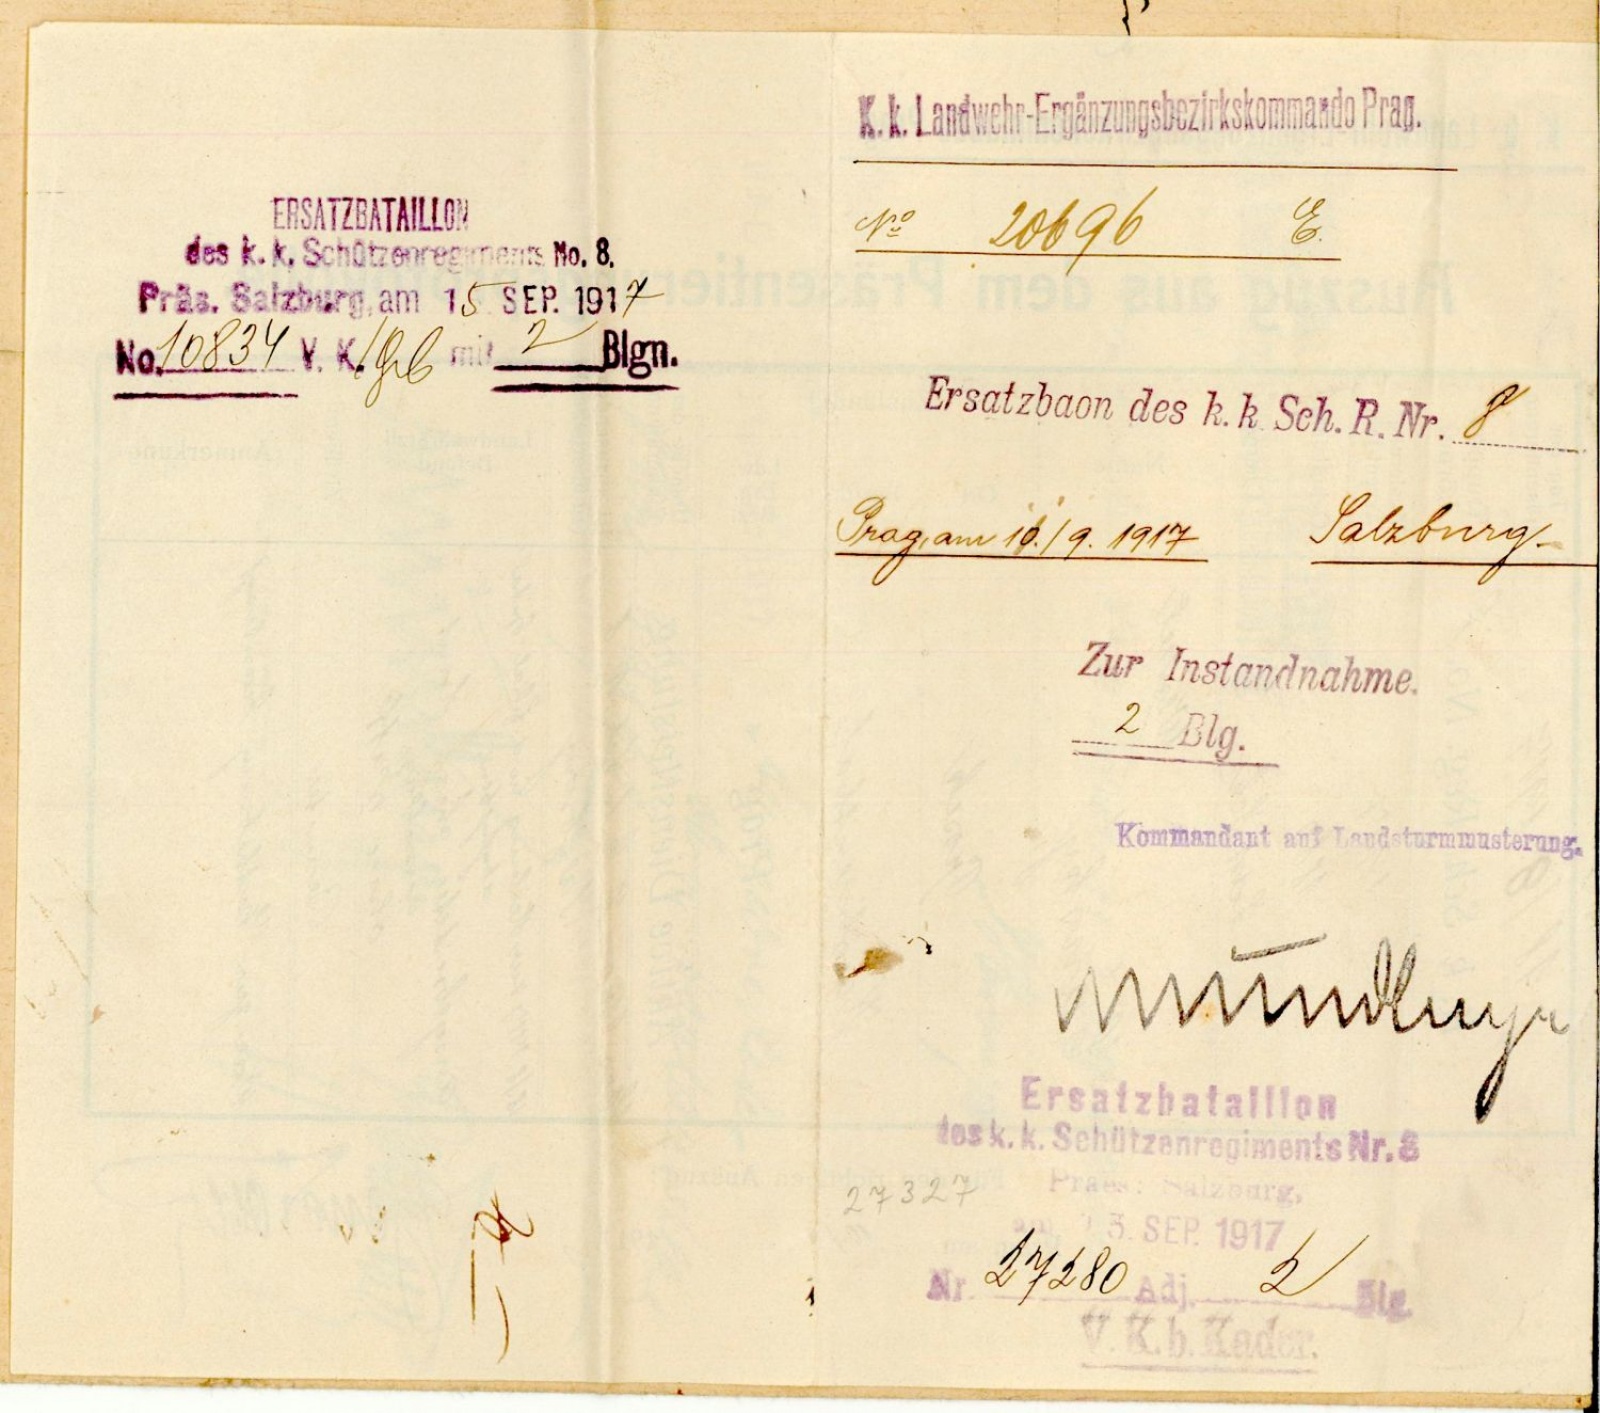 ERSATZBATAILLON
des k. k. Schützenregiments No. 8.
Präs. Salzburg, am 15 SEP. 1917
No. 10834 V. K. mit 2 Blgn.
K. k. Landwehr-Ergänzungsbezirkskommando Prag.
No 20696 E.
Ersatzbaon des k. k Sch. R. Nr. 8
Prag, am 10./9. 1917 Salzburg
Zur Instandnahme.
2 Blg.
Kommandant auf Landsturmmusterung.
Ersatzbataillon
des k. k. Schützenregiments Nr. 8
27327 Praes: Salzburg,
am 13. SEP. 1917
Nr. 27280 Adj. 2 Blg.
V. K. b. Kader.